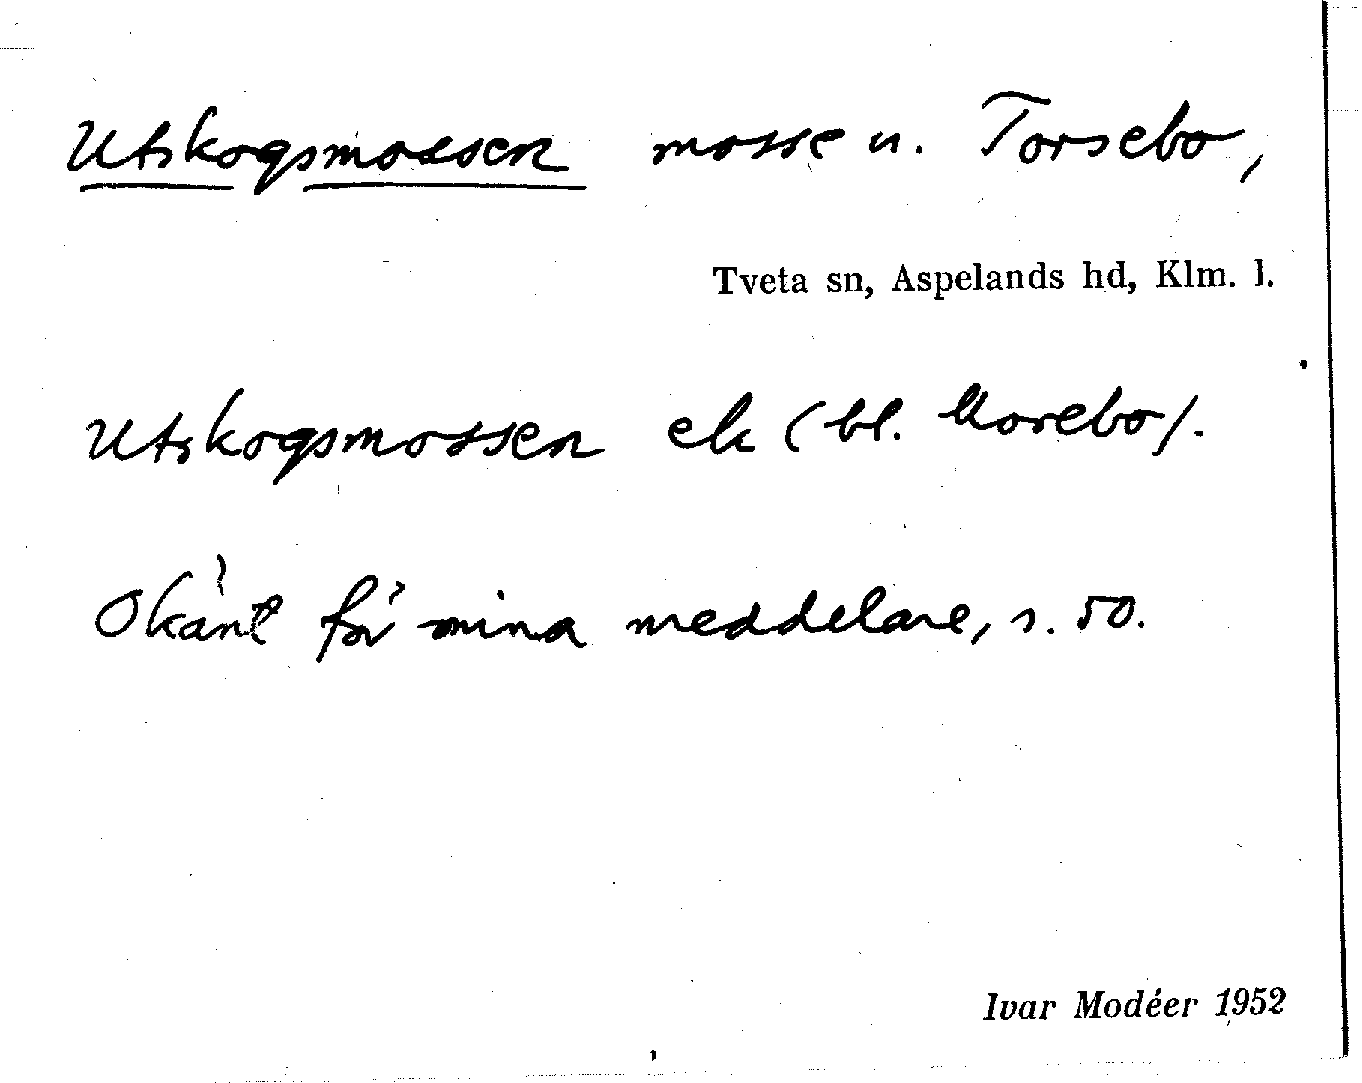 Utskogsmossen mosse u. Torsebo,
Tveta sn, Aspelands hd, Klm. l.
Utskogsmossen ek (bl. Morebo).
Okänt för mina meddelare, s. 50.
Ivar Modéer 1952